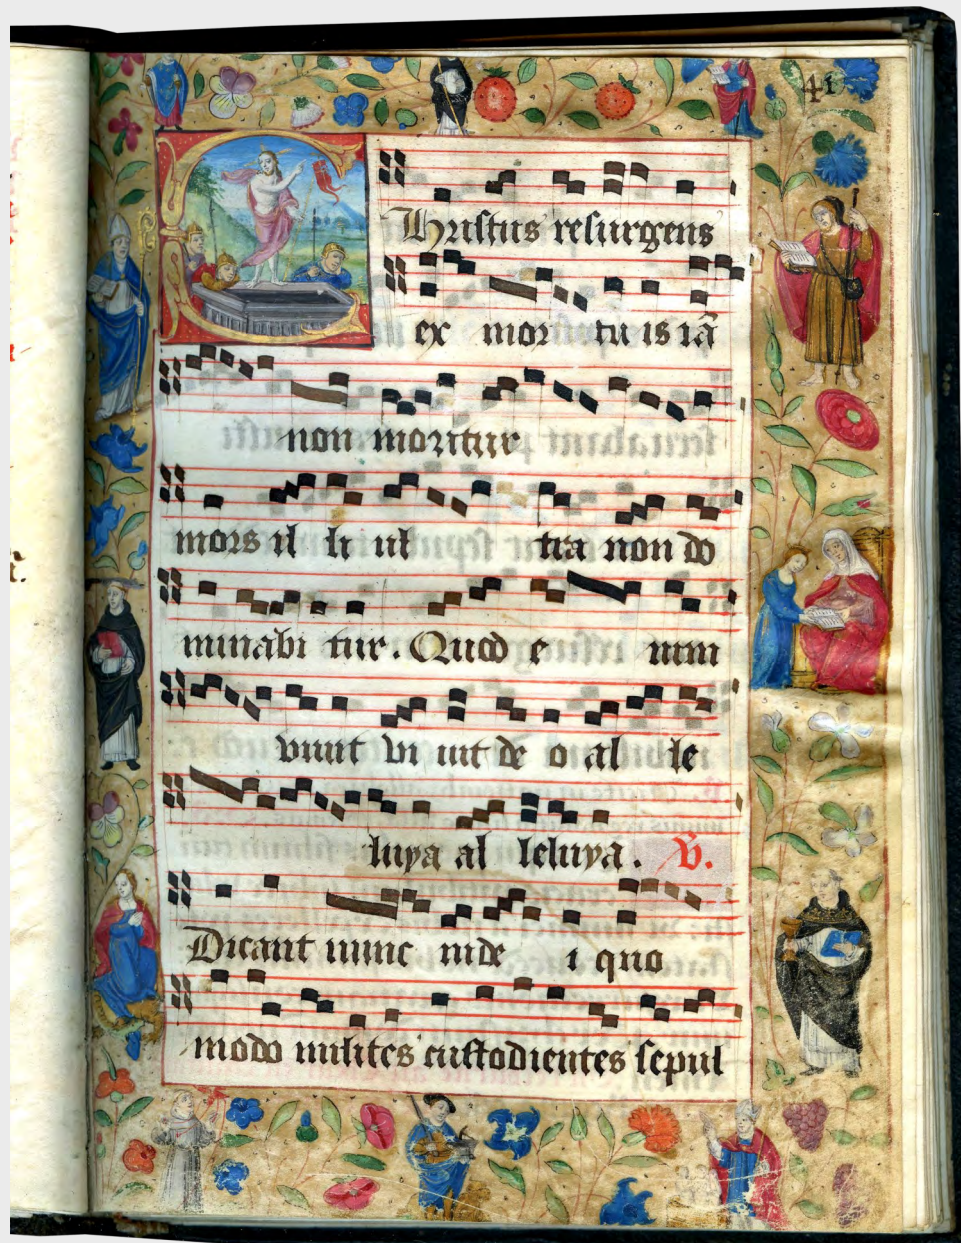 41
Christus resurgens
ex mor tu is iā
non moritur
mors il li ul tra non do
minabi tur. Quod e nim
vivit vi vit de o al le
luya al leluya. V.
Dicant nunc iude i quo
modo milites custodientes sepul